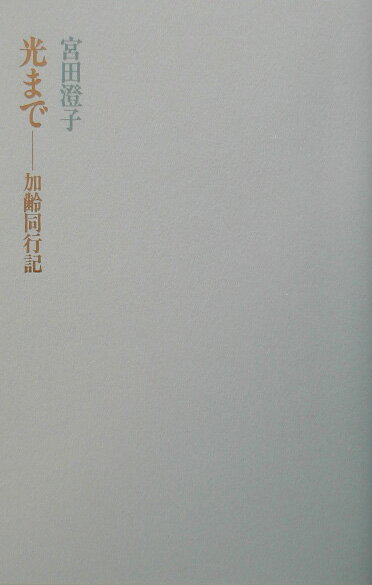 宮田澄子
光まで――加齢同行記